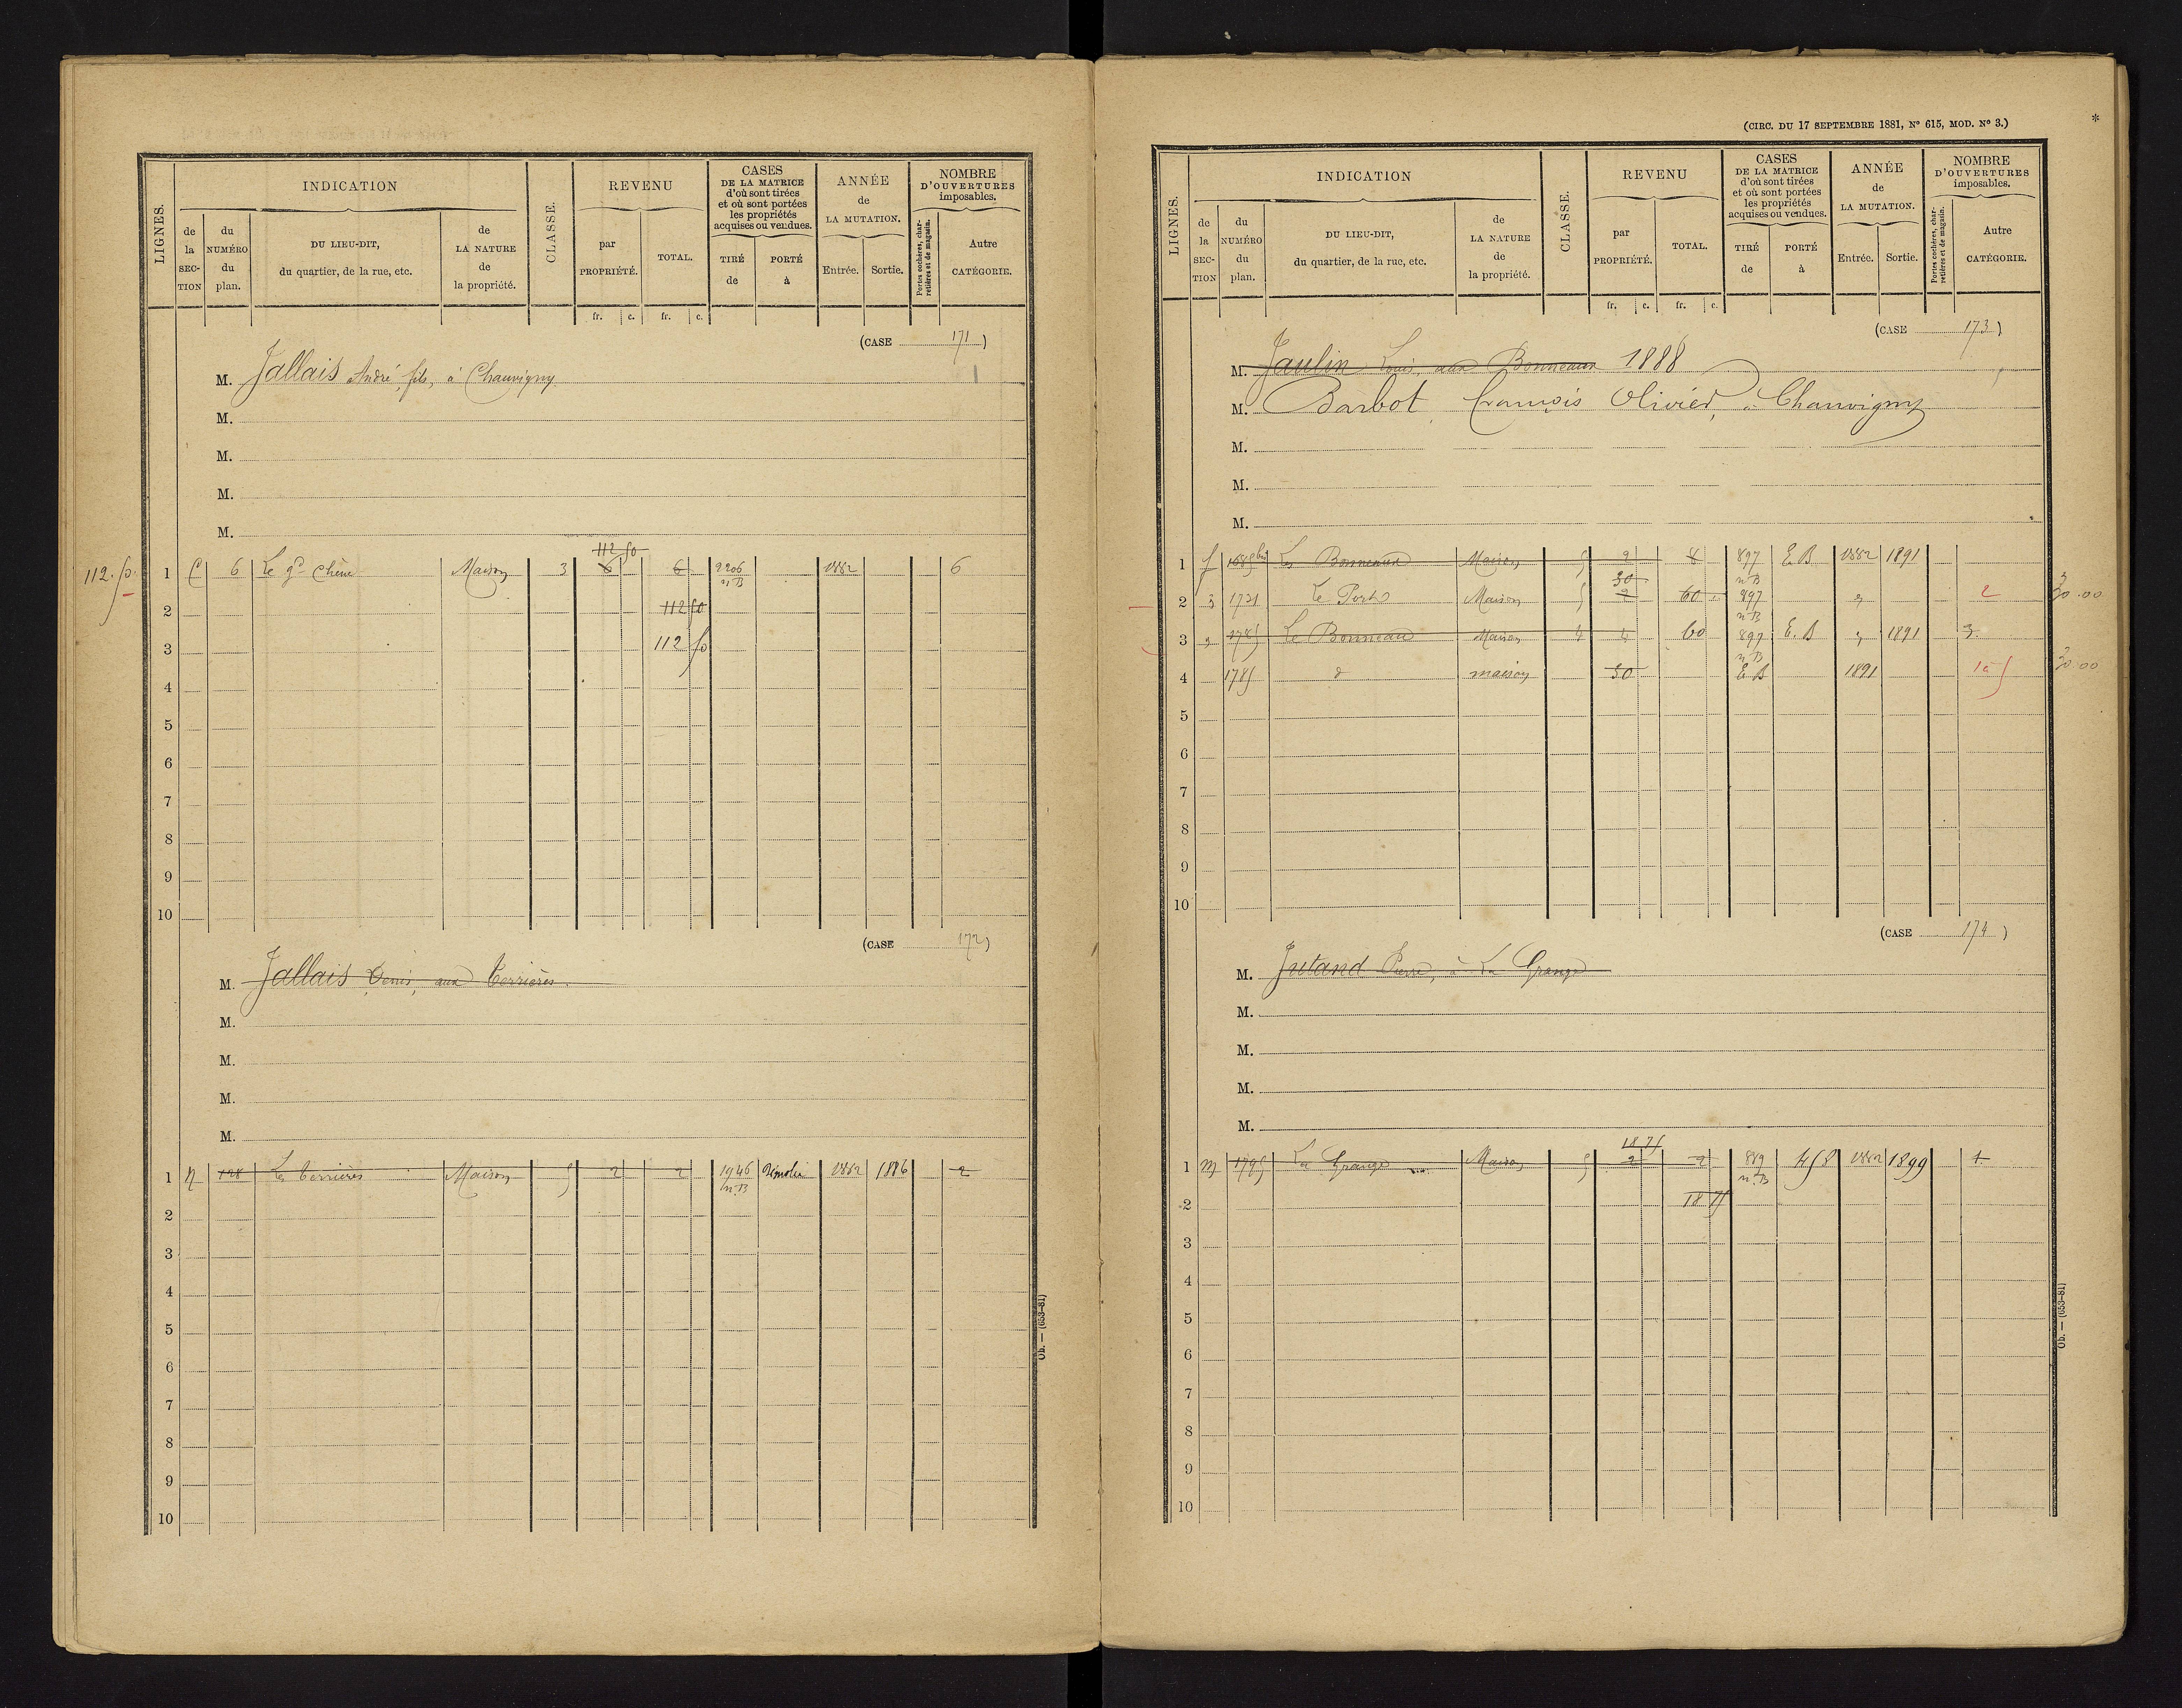 LIGNES.
INDICATION
de la SECTION
du NUMÉRO du plan.
DU LIEU-DIT, du quartier, de la rue, etc.
de LA NATURE de la propriété.
CLASSE.
REVENU
par PROPRIÉTÉ.
TOTAL.
CASES DE LA MATRICE d'où sont tirées et où sont portées les propriétés acquises ou vendues.
TIRÉ de
PORTÉ à
ANNÉE de LA MUTATION.
Entrée.
Sortie.
NOMBRE D'OUVERTURES imposables.
Portes cochères, charretières et de magasin.
Autre CATÉGORIE.
fr. c. fr. c.
(CASE 171)
M. Jallais André, fils, à Chauvigny
M.
M.
M.
M.
112 50
112.50 1 C 6 Le gd Chêne Maison 3 6 6 2206 n B 1882 6
2 112 50
3 112 50
4
5
6
7
8
9
10
(CASE 172)
M. Jallais Denis, aux Terrières.
M.
M.
M.
M.
1 N 128 Les Terrières Maison 5 2 2 1946 n.B Démolie 1882 1886 2
2
3
4
5
6
7
8
9
10
Ob. — (653-81)
(CIRC. DU 17 SEPTEMBRE 1881, N° 615, MOD. N° 3.)
*
LIGNES.
INDICATION
de la SECTION
du NUMÉRO du plan.
DU LIEU-DIT, du quartier, de la rue, etc.
de LA NATURE de la propriété.
CLASSE.
REVENU
par PROPRIÉTÉ.
TOTAL.
CASES DE LA MATRICE d'où sont tirées et où sont portées les propriétés acquises ou vendues.
TIRÉ de
PORTÉ à
ANNÉE de LA MUTATION.
Entrée.
Sortie.
NOMBRE D'OUVERTURES imposables.
Portes cochères, charretières et de magasin.
Autre CATÉGORIE.
fr. c. fr. c.
(CASE 173)
M. Jaulin Louis, aux Bonneaux 1888
M. Barbot François Olivier, à Chauvigny
M.
M.
M.
1 1685 bis Les Bonneaux Maison 5 2 8 897 n B E.B 1882 1891
30
2 1721 Le Port Maison 5 2 60 897 n B 2 30.00
3 1785 Le Bonneau Maison 4 4 60 897 n B E.B 1891 3
4 1785 d maison 30 E B 1891 30.00
5
6
7
8
9
10
(CASE 174)
M. Jutand Pierre, à La Grange
M.
M.
M.
M.
18 75
1 M 1795 La Grange Maison 5 2 2 889 n.B 458 1882 1899 1
2 18 75
3
4
5
6
7
8
9
10
Ob. — (653-81)